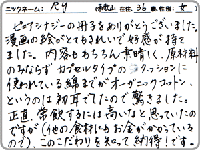 ニックネーム: たり 様 在住: 36 歳 性別: 女
ピュアシナジーの冊子をありがとうございました。
漫画の絵がとてもきれいで好感が持て
ました。内容ももちろん素晴らしく、原材料
のみならず カプセルタイプのクッションに
使われている綿までがオーガニックコットン
というのは初耳でしたので驚きました。
正直、常飲するには高いなと思っていたの
ですが(他の食材にもお金がかかっている
ので)、このこだわりを知って納得！です。